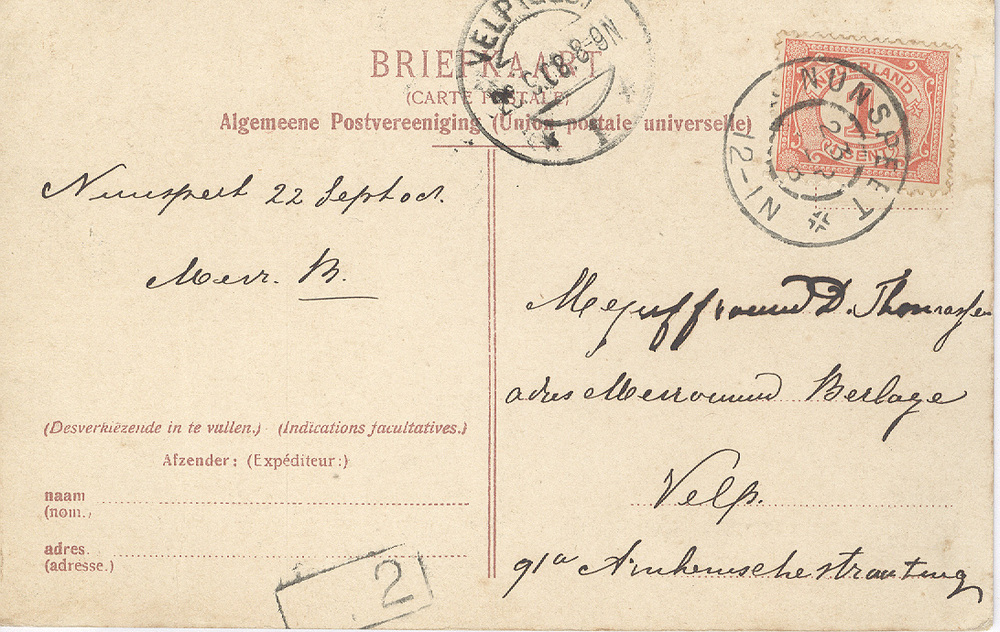 BRIEFKAART
(CARTE POSTALE)
Algemeene Postvereeniging (Union postale universelle)
VELP (GELD)
8-9N
1
NEDERLAND
1
CENT
NUNSPEET
23
12-1N
Nunspeet 22 Sept
Mevr. B.
Mejuffrouw D. Thomassen
adres Mevrouw Berlage
Velp.
91a Arnhemschestraatweg
(Desverkiezende in te vullen.) (Indications facultatives.)
Afzender: (Expéditeur:)
naam
(nom.)
adres.
(adresse.)
2